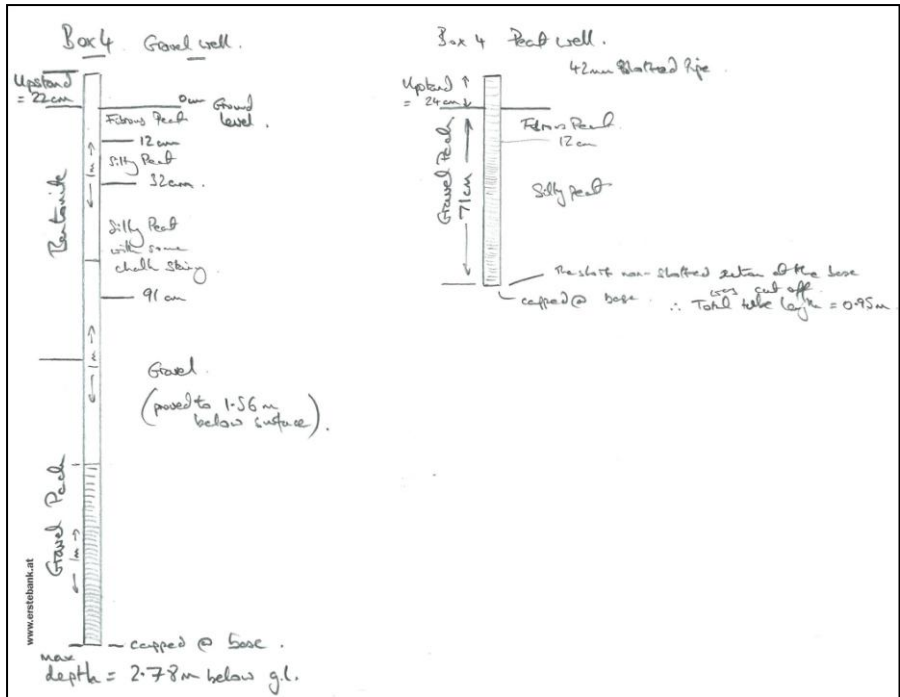 Box 4 Gravel well.
Upstand
= 22cm
0cm Ground
level.
Fibrous Peat
12 cm
Silty Peat
32cm.
Silty Peat
with some
chalk
91 cm
Gravel.
(proved to 1.56 m
below surface).
Bentonite
1m
1m
Gravel Pack
1m
capped @ base.
max
depth = 2.78m below g.l.
www.erstebank.at
Box 4 Peat well.
42mm Slotted Pipe
Upstand
= 24cm
Fibrous Peat
12cm
Silty peat
Gravel Pack
71cm
The short non-slotted section at the base
was cut off.
capped @ base. ∴ Total tube length = 0.95m.